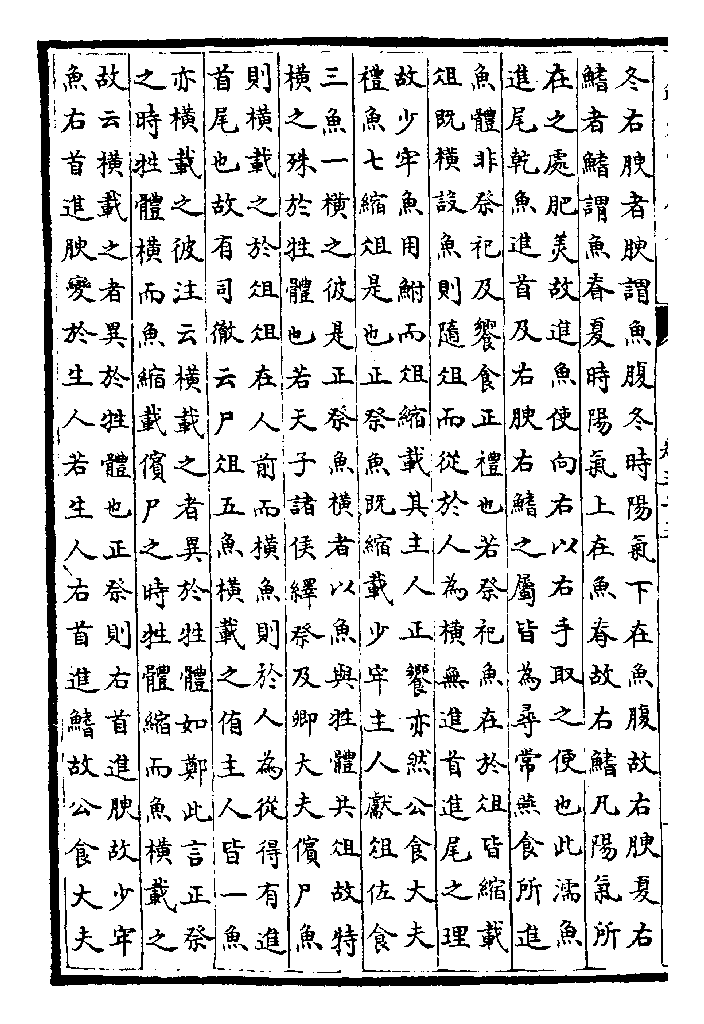 冬右腴者腴謂魚腹冬時陽氣下在魚腹故右腴夏右
鰭者鰭謂魚脊夏時陽氣上在魚脊故右鰭凡陽氣所
在之處肥美故進魚使向右以右手取之便也此濡魚
進尾乾魚進首及右腴右鰭之屬皆為尋常燕食所進
魚體非祭祀及饗食正禮也若祭祀魚在於俎皆縮載
俎既橫設魚則隨俎而從於人為橫無進首進尾之理
故少牢魚用鮒而俎縮載其主人正饗亦然公食大夫
禮魚七縮俎是也正祭魚既縮載少牢主人獻俎佐食
三魚一橫之彼是正祭魚橫者以魚與牲體共俎故特
橫之殊於牲體也若天子諸侯繹祭及卿大夫儐尸魚
則橫載之於俎俎在人前而橫魚則於人為從得有進
首尾也故有司徹云尸俎五魚橫載之侑主人皆一魚
亦橫載之彼注云橫載之者異於牲體如鄭此言正祭
之時牲體橫而魚縮載儐尸之時牲體縮而魚橫載之
故云橫載之者異於牲體也正祭則右首進腴故少牢
魚右首進腴變於生人若生人右首進鰭故公食大夫